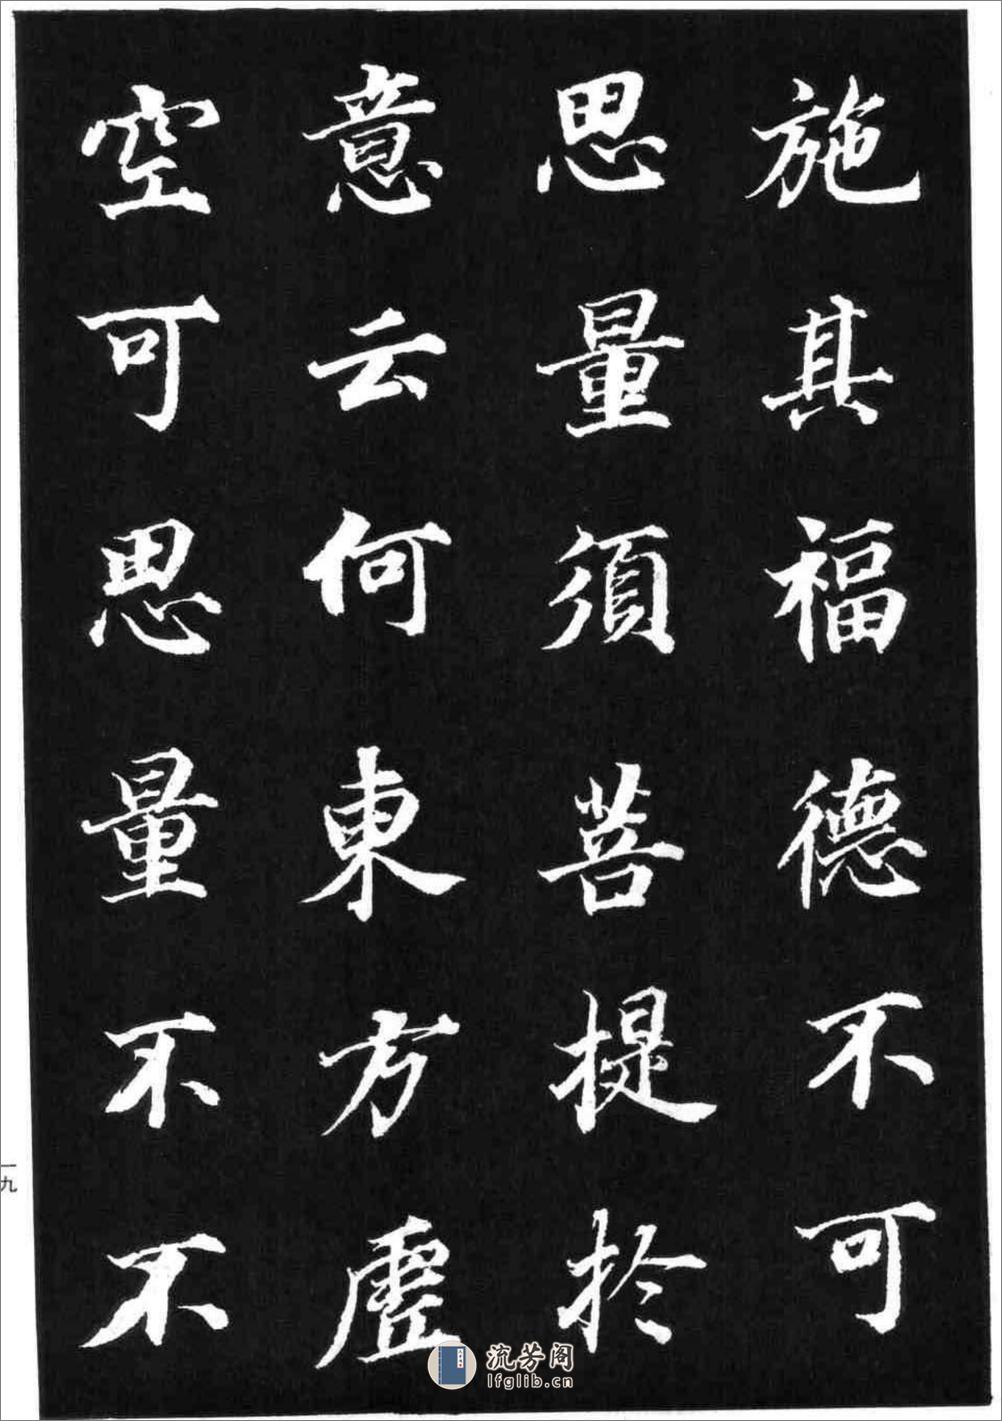 施其福德不可
思量須菩提於
意云何東方虛
空可思量不不
一九
流芳阁
lfglib.cn